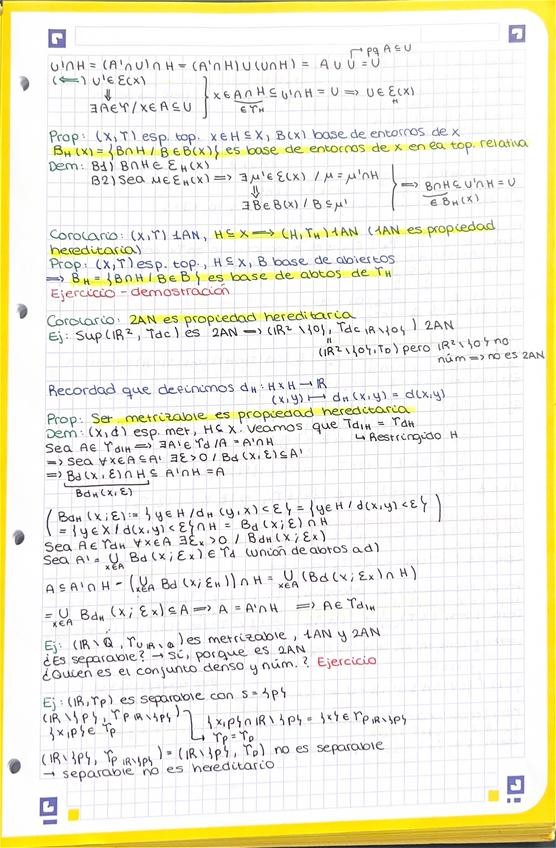 U'∩H = (A'∩U)∩H = (A'∩H)∪(U∩H) = A∪U = U → pq A⊆U
(⇐) U'∈Ɛ(x)
⇓
∃A∈Υ / x∈A⊆U } x∈A∩H ⊆ U'∩H = U ⟹ U∈Ɛ_H(x)
∈Υ_H
Prop: (X,Υ) esp. top. x∈H⊆X, B(x) base de entornos de x
B_H(x) = {B∩H / B∈B(x)} es base de entornos de x en la top. relativa
Dem: B1) B∩H ∈ Ɛ_H(x)
B2) Sea μ∈Ɛ_H(x) ⟹ ∃μ'∈Ɛ(x) / μ = μ'∩H
⇓
∃B∈B(x) / B⊆μ' } ⟹ B∩H ⊆ U'∩H = U
∈ B_H(x)
Corolario: (X,Υ) 1AN, H⊆X ⟹ (H,Υ_H) 1AN (1AN es propiedad
hereditaria)
Prop: (X,Υ) esp. top., H⊆X, B base de abiertos
⟹ B_H = {B∩H / B∈B} es base de abtos de Υ_H
Ejercicio - demostración
Corolario: 2AN es propiedad hereditaria
Ej: Sup (ℝ², Υdc) es 2AN ⟹ (ℝ²\{0}, Υdc ℝ\{0}) 2AN
=
(ℝ²\{0}, Υ_D) pero ℝ²\{0} no
núm ⟹ no es 2AN
Recordad que definimos d_H : H×H → ℝ
(x,y) ↦ d_H(x,y) = d(x,y)
Prop: Ser metrizable es propiedad hereditaria
Dem: (X,d) esp. met, H⊆X. Veamos que Υd|_H = Υd_H
↳ Restringido H
Sea A∈Υd|_H ⟹ ∃A'∈Υd / A = A'∩H
⟹ Sea ∀x∈A⊆A' ∃Ɛ>0 / Bd(x,Ɛ)⊆A'
⟹ Bd(x,Ɛ)∩H ⊆ A'∩H = A
Bd_H(x,Ɛ)
(Bd_H(x;Ɛ) := {y∈H / d_H(y,x)<Ɛ} = {y∈H / d(x,y)<Ɛ}
= {y∈X / d(x,y)<Ɛ}∩H = Bd(x;Ɛ)∩H)
Sea A∈Υd_H ∀x∈A ∃Ɛ_x>0 / Bd_H(x;Ɛ_x)
Sea A' = ∪_{x∈A} Bd(x;Ɛ_x) ∈ Υd (unión de abtos ad)
A ⊆ A'∩H = (∪_{x∈A} Bd(x;Ɛ_x))∩H = ∪_{x∈A} (Bd(x;Ɛ_x)∩H)
= ∪_{x∈A} Bd_H(x;Ɛ_x) ⊆ A ⟹ A = A'∩H ⟹ A∈Υd|_H
Ej: (ℝ\ℚ, Υ_U|ℝ\ℚ) es metrizable, 1AN y 2AN
¿Es separable? → Sí, porque es 2AN
¿Quién es el conjunto denso y núm.? Ejercicio
Ej: (ℝ,Υp) es separable con S = {p}
(ℝ\{p}, Υp ℝ\{p})
{x,p} ∈ Υp } {x,p}∩ℝ\{p} = {x} ∈ Υp ℝ\{p}
↳ Υp = Υ_D
(ℝ\{p}, Υp ℝ\{p}) = (ℝ\{p}, Υ_D) no es separable
→ separable no es hereditario